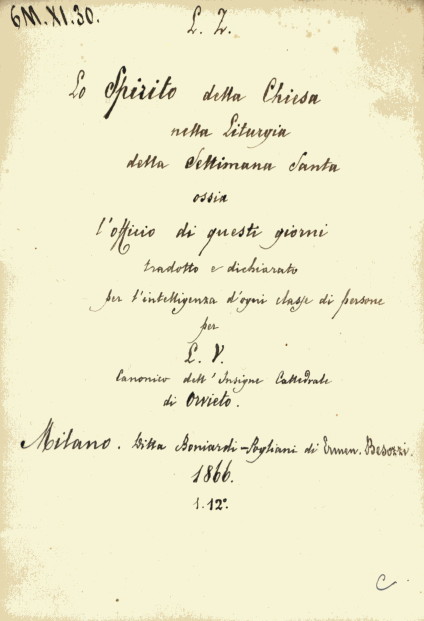 6M.XI.30.
L. Z.
Lo Spirito della Chiesa
nella Liturgia
della Settimana Santa
ossia
l'officio di questi giorni
tradotto e dichiarato
per l'intelligenza d'ogni classe di persone
per
L. V.
Canonico dell'Insigne Cattedrale
di Orvieto.
Milano. Ditta Boniardi-Pogliani di Ermen. Besozzi.
1866.
1.12°.
C